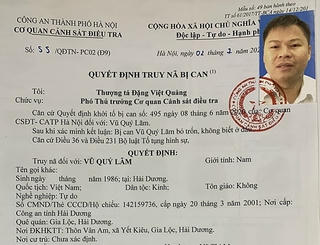 Mẫu số: 49 ban hành theo
TT số 61/2017/TT-BCA ngày 14/12/201
CÔNG AN THÀNH PHỐ HÀ NỘI
CƠ QUAN CẢNH SÁT ĐIỀU TRA
CỘNG HÒA XÃ HỘI CHỦ NGHĨA
Độc lập - Tự do - Hạnh
Số: 55 /QĐTN- PC02 (Đ9)
Hà Nội, ngày 01 tháng 2 năm 202
QUYẾT ĐỊNH TRUY NÃ BỊ CAN (1)
Tôi: Thượng tá Đặng Việt Quảng
Chức vụ: Phó Thủ trưởng Cơ quan Cảnh sát điều tra
Căn cứ Quyết định khởi tố bị can số: 495 ngày 08 tháng 6 năm của Cơ quan
CSĐT- CATP Hà Nội đối với: Vũ Quý Lâm.
Sau khi xác minh kết luận: Bị can Vũ Quý Lâm bỏ trốn, không biết ở đâu.
Căn cứ Điều 36 và Điều 231 Bộ luật Tố tụng hình sự,
QUYẾT ĐỊNH:
Truy nã đối với: VŨ QUÝ LÂM Giới tính: Nam
Tên gọi khác:
Sinh ngày tháng năm 1986; tại: Hải Dương.
Quốc tịch: Việt Nam; Dân tộc: Kinh; Tôn giáo: Không
Nghề nghiệp: Tự do
Số CMND/Thẻ CCCD/Hộ chiếu: 142159736, cấp ngày 20 tháng 3 năm 2001; Nơi cấp:
Công an tỉnh Hải Dương.
Quê quán: Gia Lộc, Hải Dương.
Nơi ĐKHKTT: Thôn Vân Am, xã Yết Kiêu, Gia Lộc, Hải Dương.
Nơi cư trú: Chưa xác định.